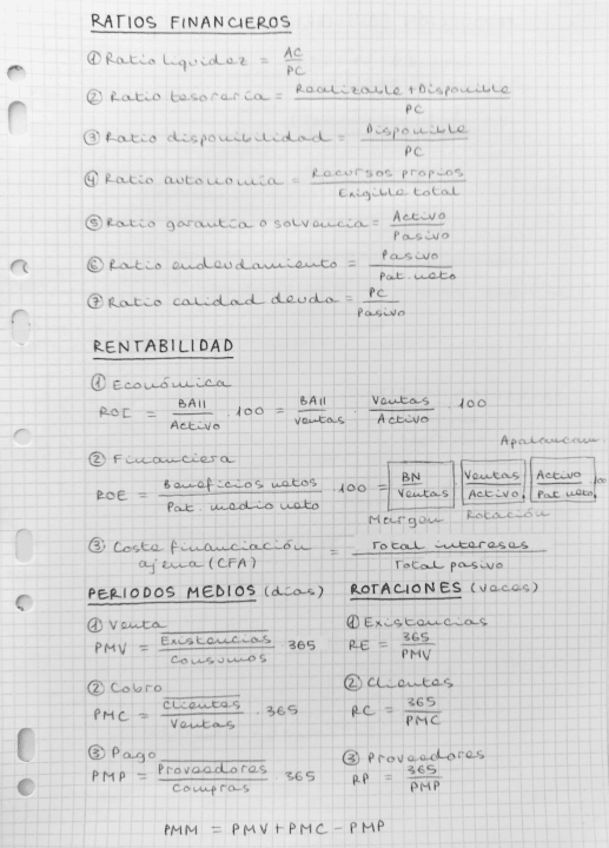 RATIOS FINANCIEROS
① Ratio liquidez = AC / PC
② Ratio tesorería = Realizable + Disponible / PC
③ Ratio disponibilidad = Disponible / PC
④ Ratio autonomía = Recursos propios / Exigible total
⑤ Ratio garantía o solvencia = Activo / Pasivo
⑥ Ratio endeudamiento = Pasivo / Pat. neto
⑦ Ratio calidad deuda = PC / Pasivo
RENTABILIDAD
① Económica
ROI = BAII / Activo · 100 = BAII / Ventas · Ventas / Activo · 100
Apalancam.
② Financiera
ROE = Beneficios netos / Pat. medio neto · 100 = BN / Ventas · Ventas / Activo · Activo / Pat neto · 100
Margen Rotación
③ Coste financiación ajena (CFA) = Total intereses / Total pasivo
PERIODOS MEDIOS (días)
① Venta
PMV = Existencias / Consumos · 365
② Cobro
PMC = Clientes / Ventas · 365
③ Pago
PMP = Proveedores / Compras · 365
ROTACIONES (veces)
① Existencias
RE = 365 / PMV
② Clientes
RC = 365 / PMC
③ Proveedores
RP = 365 / PMP
PMM = PMV + PMC - PMP